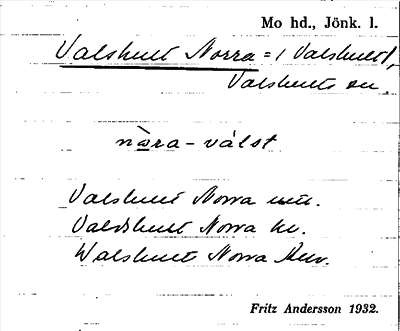 Mo hd., Jönk. l.
Valshult Norra = 1 Valshult,
Valshults sn.
nòra - válst
Valshult Norra
Valdshult Norra
Walshult Norra
Fritz Andersson 1932.